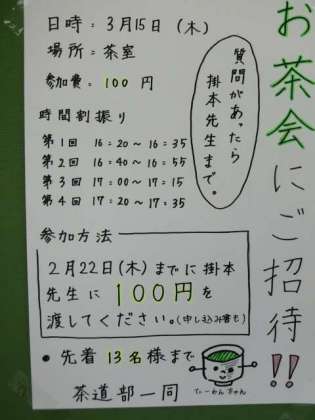 お茶会にご招待!!
日時：3月15日（木）
場所：茶室
参加費：100円
質問があったら
掛本先生まで。
時間割振り
第1回 16:20～16:35
第2回 16:40～16:55
第3回 17:00～17:15
第4回 17:20～17:35
参加方法
2月22日(木)までに掛本
先生に100円を
渡してください。(申し込み書も)
●先着13名様まで
てぃーわんちゃん
茶道部一同